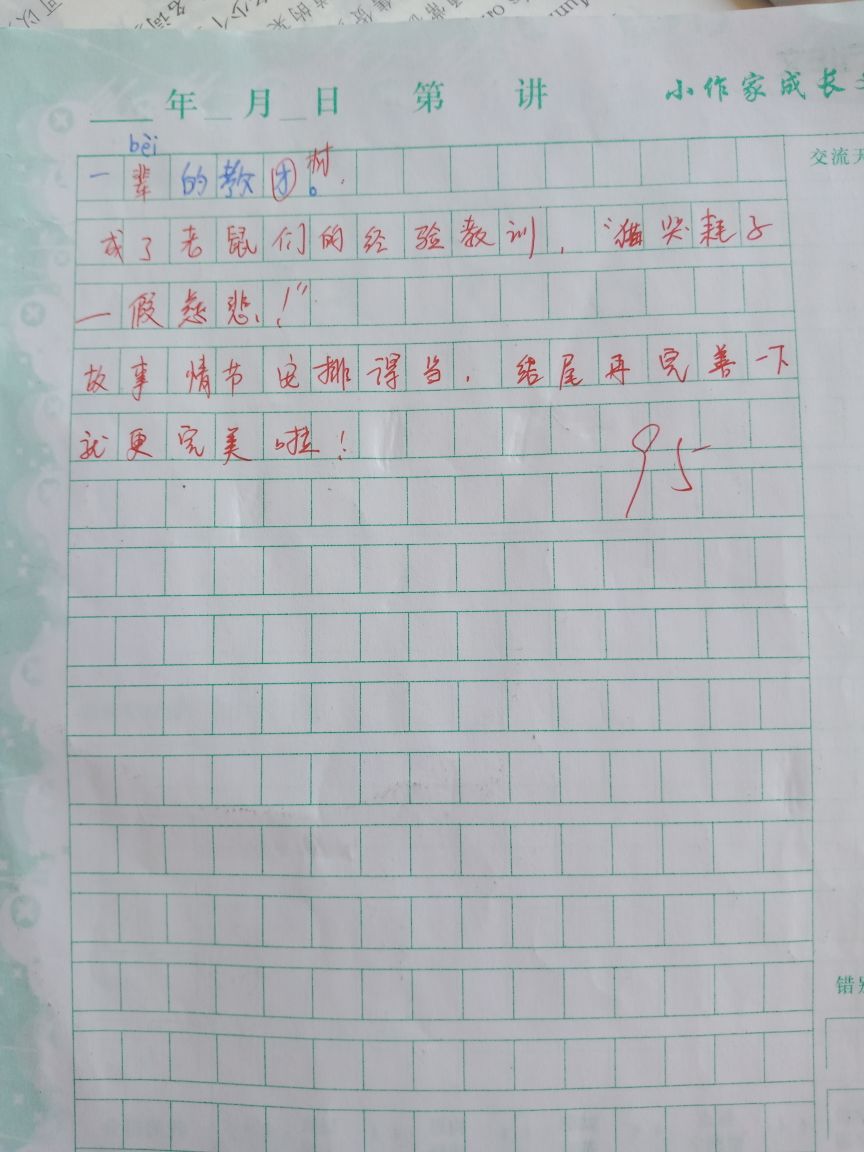 年 月 日 第 讲 小作家成长
交流天
bèi
一辈的教才。
材
成了老鼠们的经验教训，“猫哭耗子
一假慈悲！”
故事情节安排得当，结尾再完善一下
就更完美啦！
95
错别